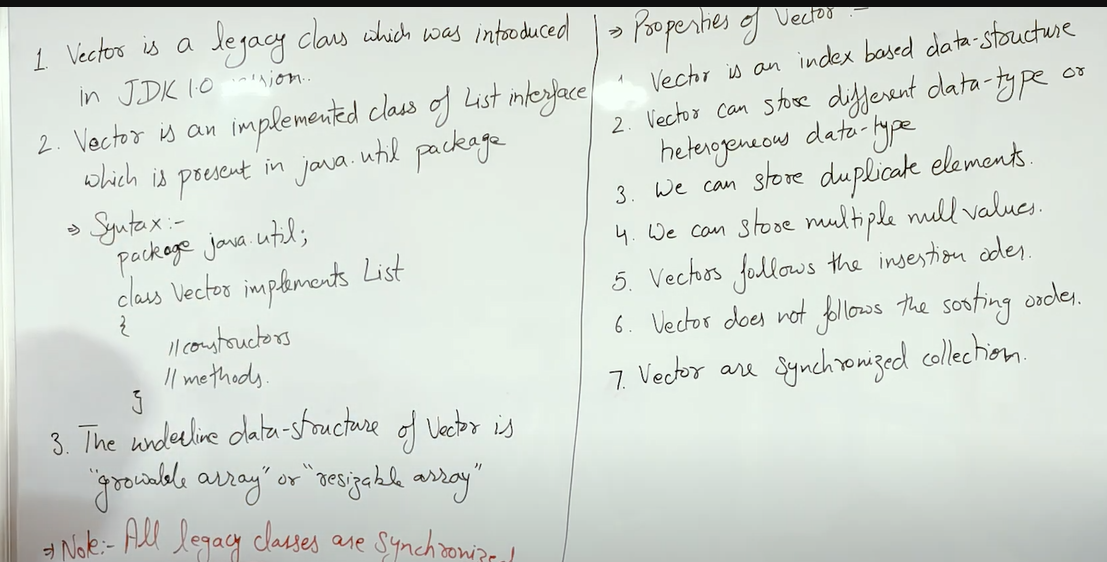 1. Vector is a legacy class which was introduced
in JDK 1.0
2. Vector is an implemented class of List interface
which is present in java.util package
⇒ Syntax:-
package java.util;
class Vector implements List
{
//constructors
// methods.
}
3. The underline data-structure of Vector is
"growable array" or "resizable array"
⇒ Note:- All legacy classes are Synchronized
⇒ Properties of Vector :-
1. Vector is an index based data-structure
2. Vector can store different data-type or
heterogeneous data-type
3. We can store duplicate elements.
4. We can store multiple null values.
5. Vectors follows the insertion oder.
6. Vector does not follows the sorting order.
7. Vector are Synchronized collection.